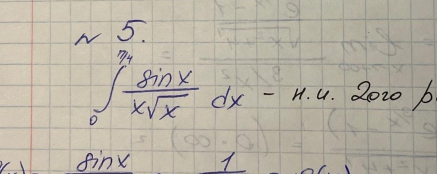 ~ 5.
∫₀^{π/4} sinx / x√x dx - н.и. 2ого р.
sinx 1